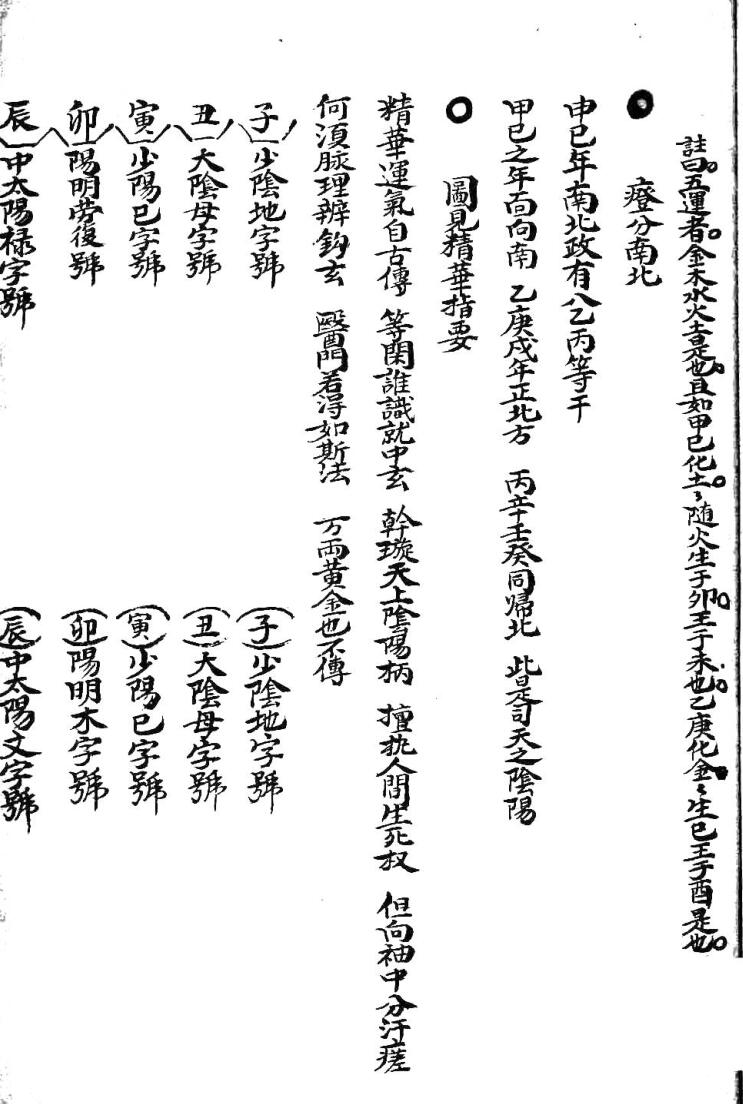 註曰五運者金木水火土是也且如甲已化土〻随火生于卯王于未也乙庚化金〻生巳王于酉是也
癈分南北
申巳年南北政有八乙丙等干
甲巳之年面向南 乙庚戌年正北方 丙辛壬癸同歸北 此是司天之陰陽
圖見精華指要
精華運氣自古傳 等閑誰識就中玄 幹璇天上陰陽柄 擅执人間生死权 但向袖中分汗瘥
何湏脉理辨鈎玄 醫門若淂如斯法 万両黄金也不傳
子 少陰地字號 (子)少陰地字號
丑 大陰母字號 (丑)大陰母字號
寅 少陽巳字號 (寅)少陽巳字號
卯 陽明劳復號 (卯)陽明木字號
辰 中太陽禄字號 (辰)中太陽文字號